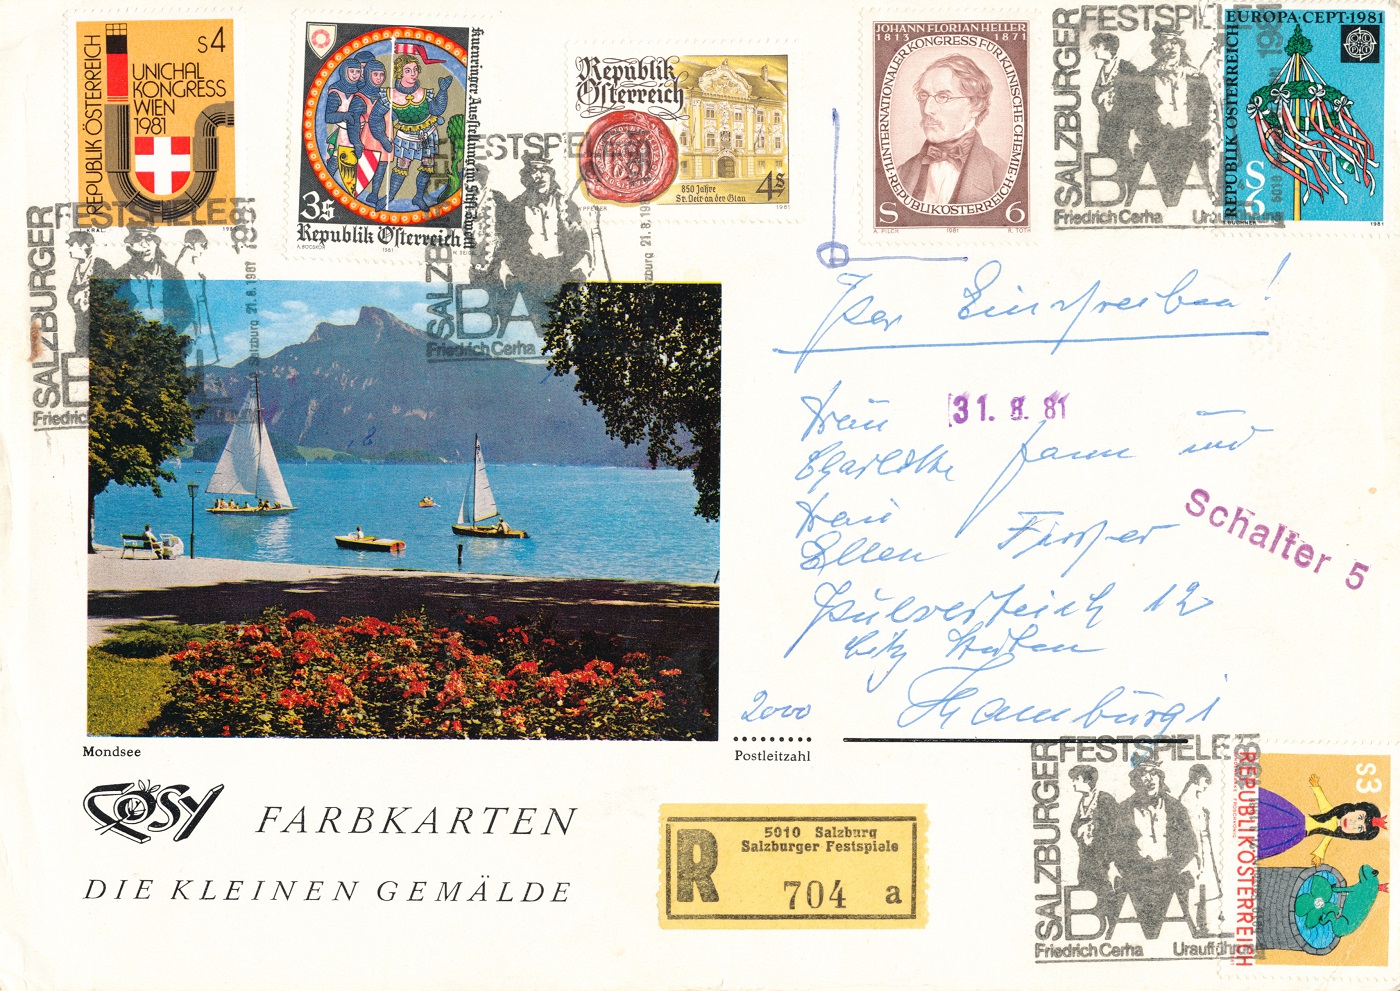 REPUBLIK ÖSTERREICH
S4
UNICHAL
KONGRESS
WIEN
1981
1981
Kuenringer-Ausstellung im Stift Zwettl
3s
Republik Österreich
1981
Republik
Österreich
850 Jahre
St. Veit an der Glan
4s
1981
JOHANN FLORIAN HELLER
1813 1871
XI·INTERNATIONALER KONGRESS FÜR KLINISCHE CHEMIE·
REPUBLIK ÖSTERREICH
S 6
A. PILCH 1981 R. TOTH
EUROPA·CEPT·1981
REPUBLIK ÖSTERREICH
S
6
1981
SALZBURGER
FESTSPIELE
1981
BAAL
Friedrich Cerha Uraufführung
SALZBURGER
FESTSPIELE 1981
Salzburg 21.8.1981
Friedrich
SALZB
FESTSPIE
BA
Friedrich Cerha
21.8.19
Per Einschreiben!
Frau
31. 8. 81
Charlotte Jann und
Frau
Ellen
Schalter 5
Pulverteich 12
2000 Hamburg 1
Mondsee
Postleitzahl
COSY FARBKARTEN
DIE KLEINEN GEMÄLDE
R
5010 Salzburg
Salzburger Festspiele
704 a
SALZBURGER
FESTSPIELE
BAAL
Friedrich Cerha Uraufführung
S3
REPUBLIK ÖSTERREICH